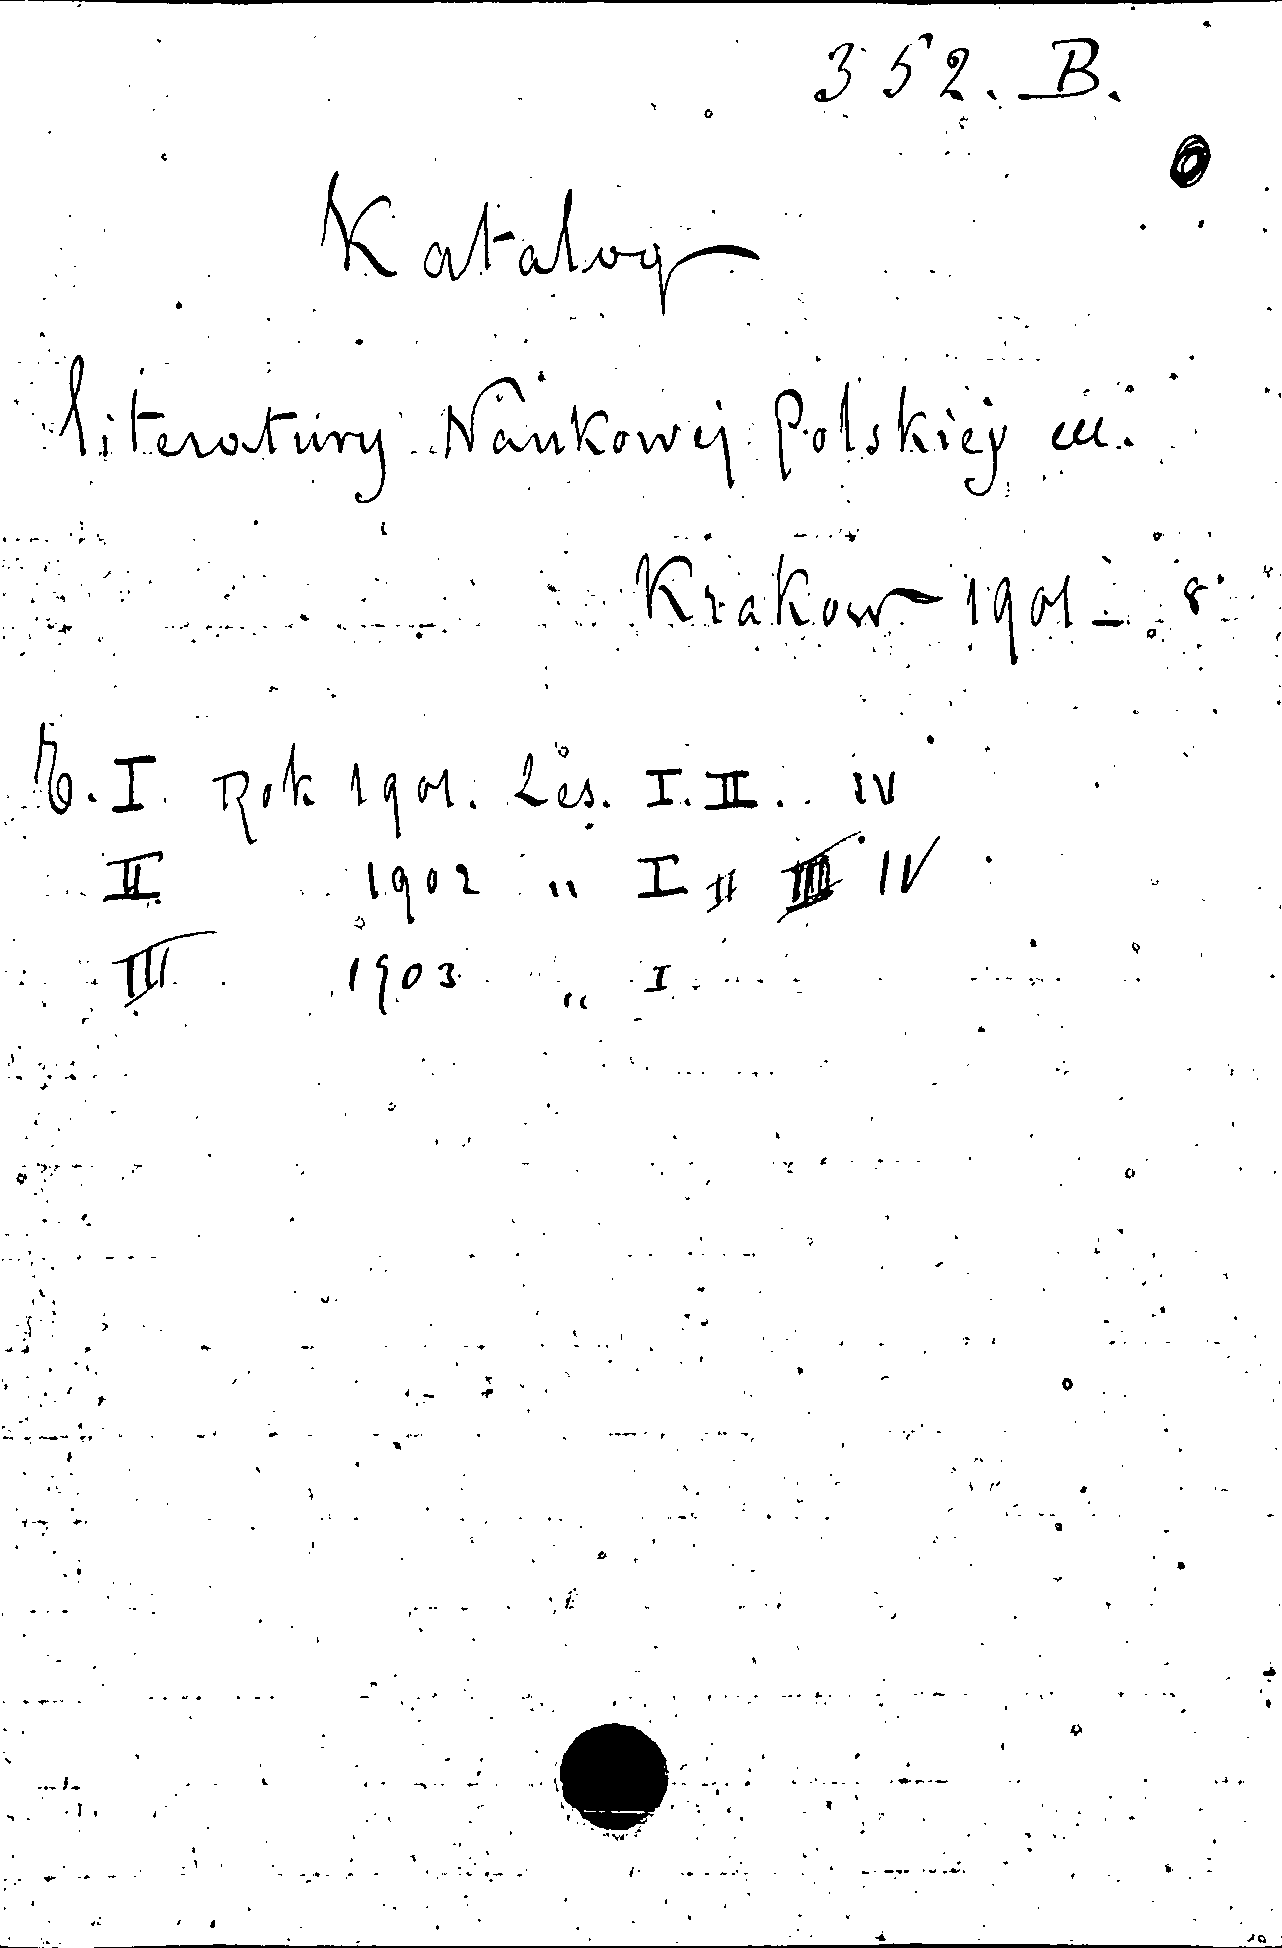 352. B.
Katalog
literatury Naukowej Polskiej
Krakow 1901 - 8°
T. I. Rok 1901. Zes. I. II. IV
II 1902 " I II III IV
III 1903 " I